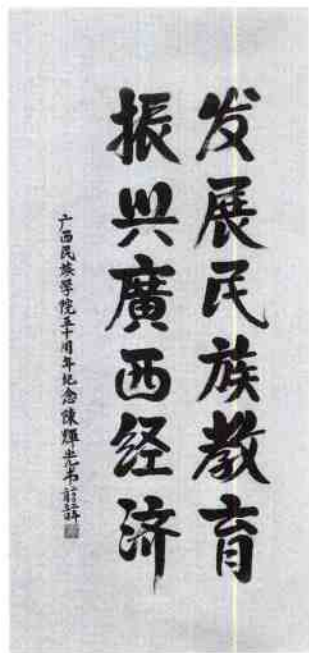 发展民族教育
振兴廣西经济
广西民族学院五十周年纪念陳輝光书